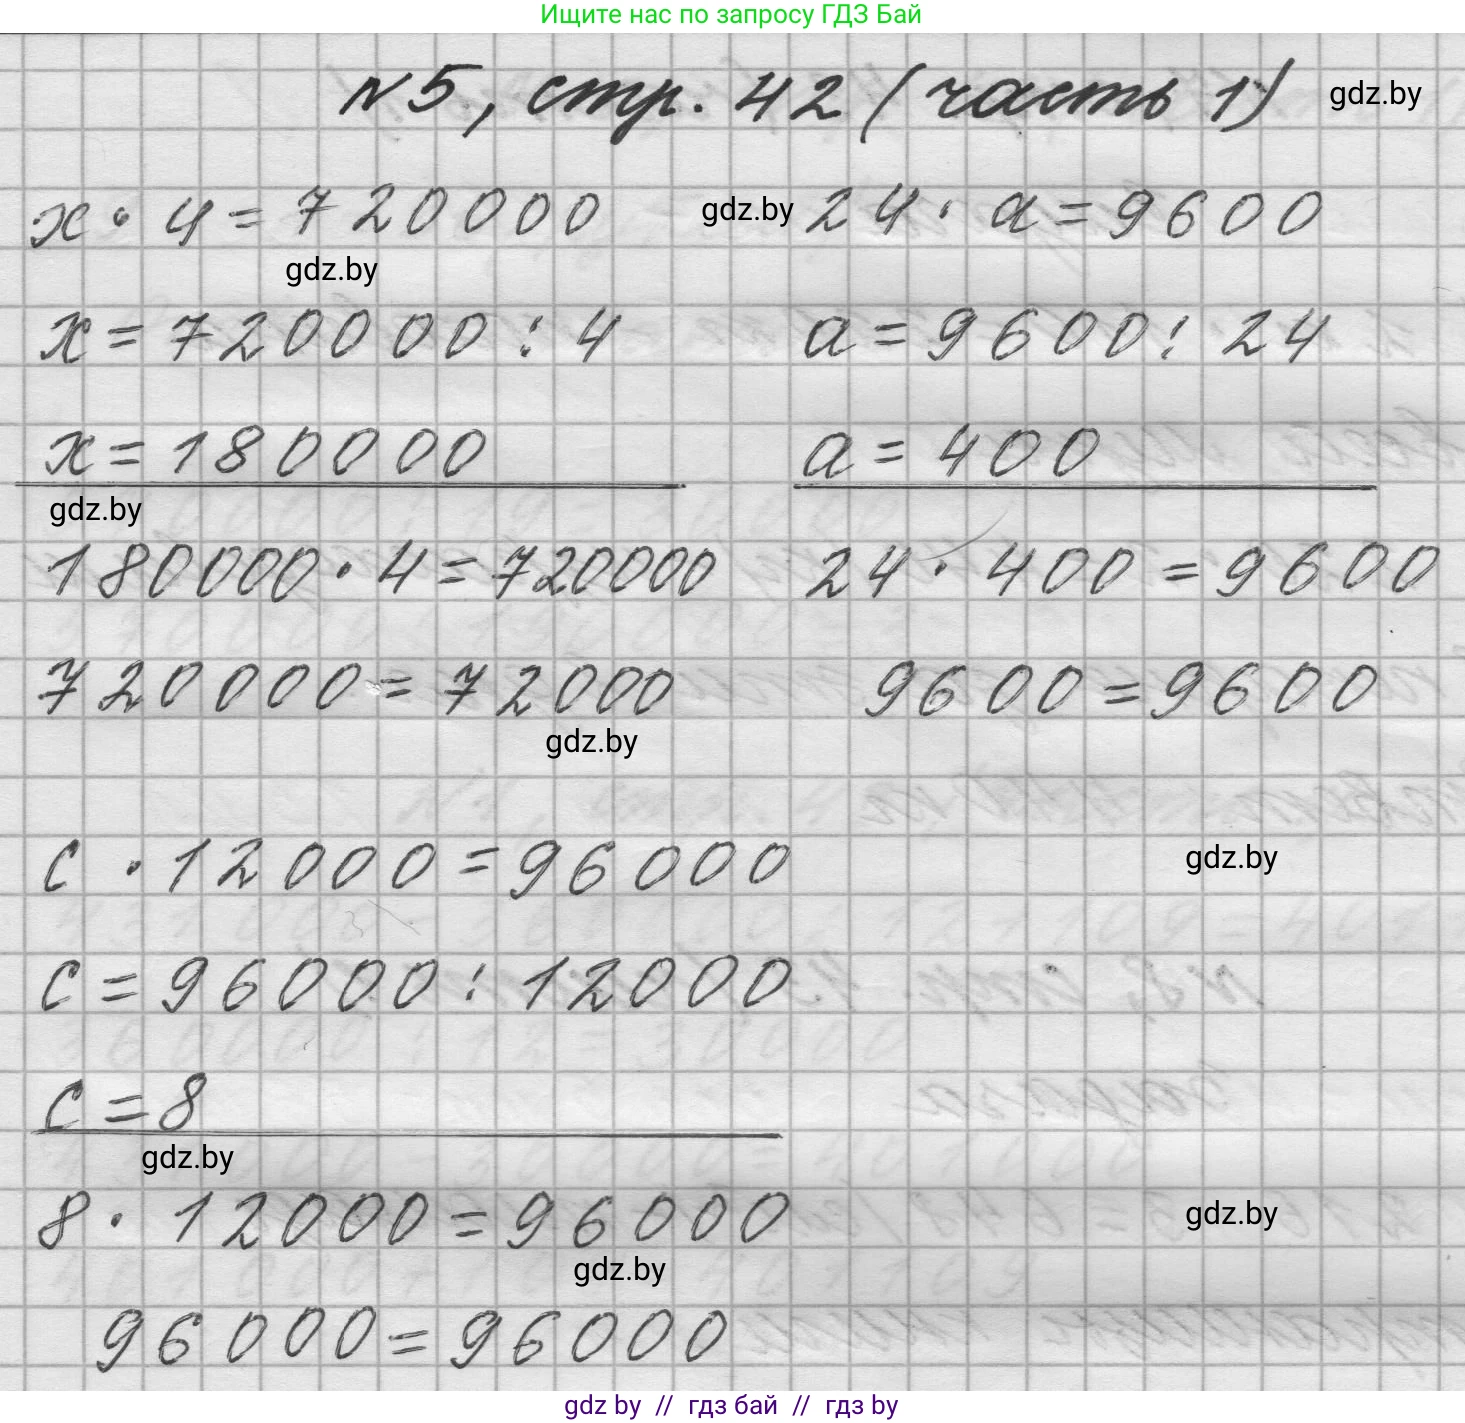 Ищите нас по запросу ГДЗ Бай
№5, стр. 42 (часть 1)
gdz.by
x · 4 = 720000
gdz.by
24 · a = 9600
gdz.by
x = 720000 : 4
a = 9600 : 24
x = 180000
a = 400
gdz.by
180000 · 4 = 720000
24 · 400 = 9600
720000 = 72000
9600 = 9600
gdz.by
c · 12000 = 96000
gdz.by
c = 96000 : 12000
c = 8
gdz.by
8 · 12000 = 96000
gdz.by
gdz.by
96000 = 96000
gdz by // гдз бай // гдз by